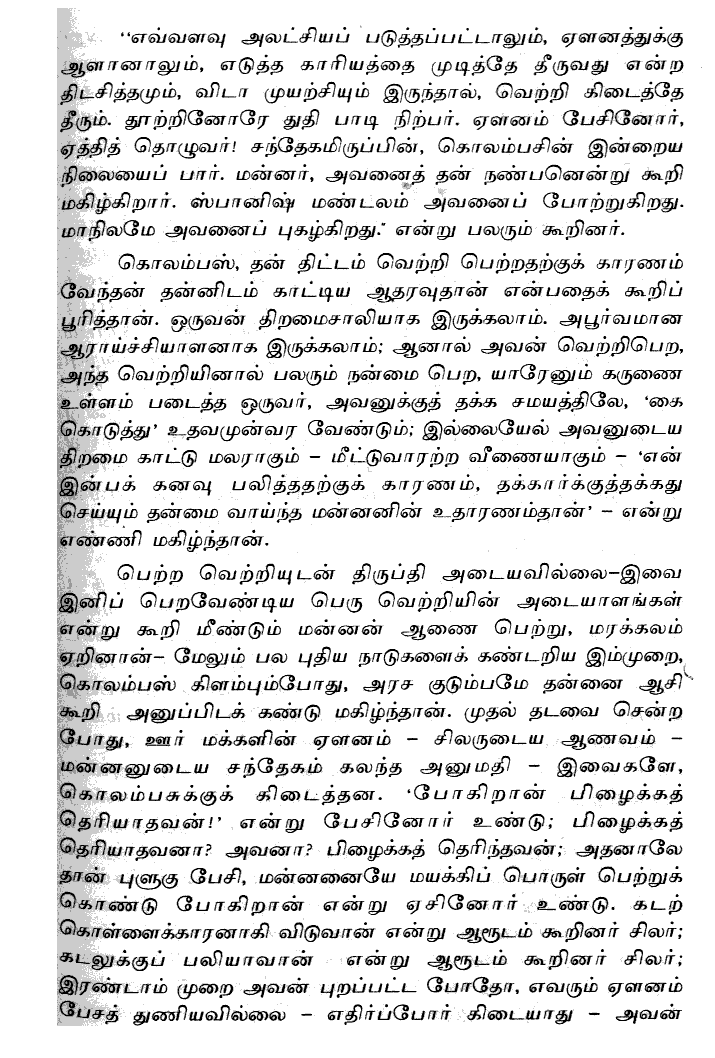 ‘‘எவ்வளவு அலட்சியப் படுத்தப்பட்டாலும், ஏளனத்துக்கு
ஆளானாலும், எடுத்த காரியத்தை முடித்தே தீருவது என்ற
திடசித்தமும், விடா முயற்சியும் இருந்தால், வெற்றி கிடைத்தே
தீரும். தூற்றினோரே துதி பாடி நிற்பர். ஏளனம் பேசினோர்,
ஏத்தித் தொழுவர்! சந்தேகமிருப்பின், கொலம்பசின் இன்றைய
நிலையைப் பார். மன்னர், அவனைத் தன் நண்பனென்று கூறி
மகிழ்கிறார். ஸ்பானிஷ் மண்டலம் அவனைப் போற்றுகிறது.
மாநிலமே அவனைப் புகழ்கிறது.’’ என்று பலரும் கூறினர்.
கொலம்பஸ், தன் திட்டம் வெற்றி பெற்றதற்குக் காரணம்
வேந்தன் தன்னிடம் காட்டிய ஆதரவுதான் என்பதைக் கூறிப்
பூரித்தான். ஒருவன் திறமைசாலியாக இருக்கலாம். அபூர்வமான
ஆராய்ச்சியாளனாக இருக்கலாம்; ஆனால் அவன் வெற்றிபெற,
அந்த வெற்றியினால் பலரும் நன்மை பெற, யாரேனும் கருணை
உள்ளம் படைத்த ஒருவர், அவனுக்குத் தக்க சமயத்திலே, ‘கை
கொடுத்து’ உதவமுன்வர வேண்டும்; இல்லையேல் அவனுடைய
திறமை காட்டு மலராகும் – மீட்டுவாரற்ற வீணையாகும் – ‘என்
இன்பக் கனவு பலித்ததற்குக் காரணம், தக்கார்க்குத்தக்கது
செய்யும் தன்மை வாய்ந்த மன்னனின் உதாரணம்தான்’ – என்று
எண்ணி மகிழ்ந்தான்.
பெற்ற வெற்றியுடன் திருப்தி அடையவில்லை–இவை
இனிப் பெறவேண்டிய பெரு வெற்றியின் அடையாளங்கள்
என்று கூறி மீண்டும் மன்னன் ஆணை பெற்று, மரக்கலம்
ஏறினான்– மேலும் பல புதிய நாடுகளைக் கண்டறிய இம்முறை,
கொலம்பஸ் கிளம்பும்போது, அரச குடும்பமே தன்னை ஆசி
கூறி அனுப்பிடக் கண்டு மகிழ்ந்தான். முதல் தடவை சென்ற
போது, ஊர் மக்களின் ஏளனம் – சிலருடைய ஆணவம் –
மன்னனுடைய சந்தேகம் கலந்த அனுமதி – இவைகளே,
கொலம்பசுக்குக் கிடைத்தன. ‘போகிறான் பிழைக்கத்
தெரியாதவன்!’ என்று பேசினோர் உண்டு; பிழைக்கத்
தெரியாதவனா? அவனா? பிழைக்கத் தெரிந்தவன்; அதனாலே
தான் புளுகு பேசி, மன்னனையே மயக்கிப் பொருள் பெற்றுக்
கொண்டு போகிறான் என்று ஏசினோர் உண்டு. கடற்
கொள்ளைக்காரனாகி விடுவான் என்று ஆரூடம் கூறினர் சிலர்;
கடலுக்குப் பலியாவான் என்று ஆரூடம் கூறினர் சிலர்;
இரண்டாம் முறை அவன் புறப்பட்ட போதோ, எவரும் ஏளனம்
பேசத் துணியவில்லை – எதிர்ப்போர் கிடையாது – அவன்